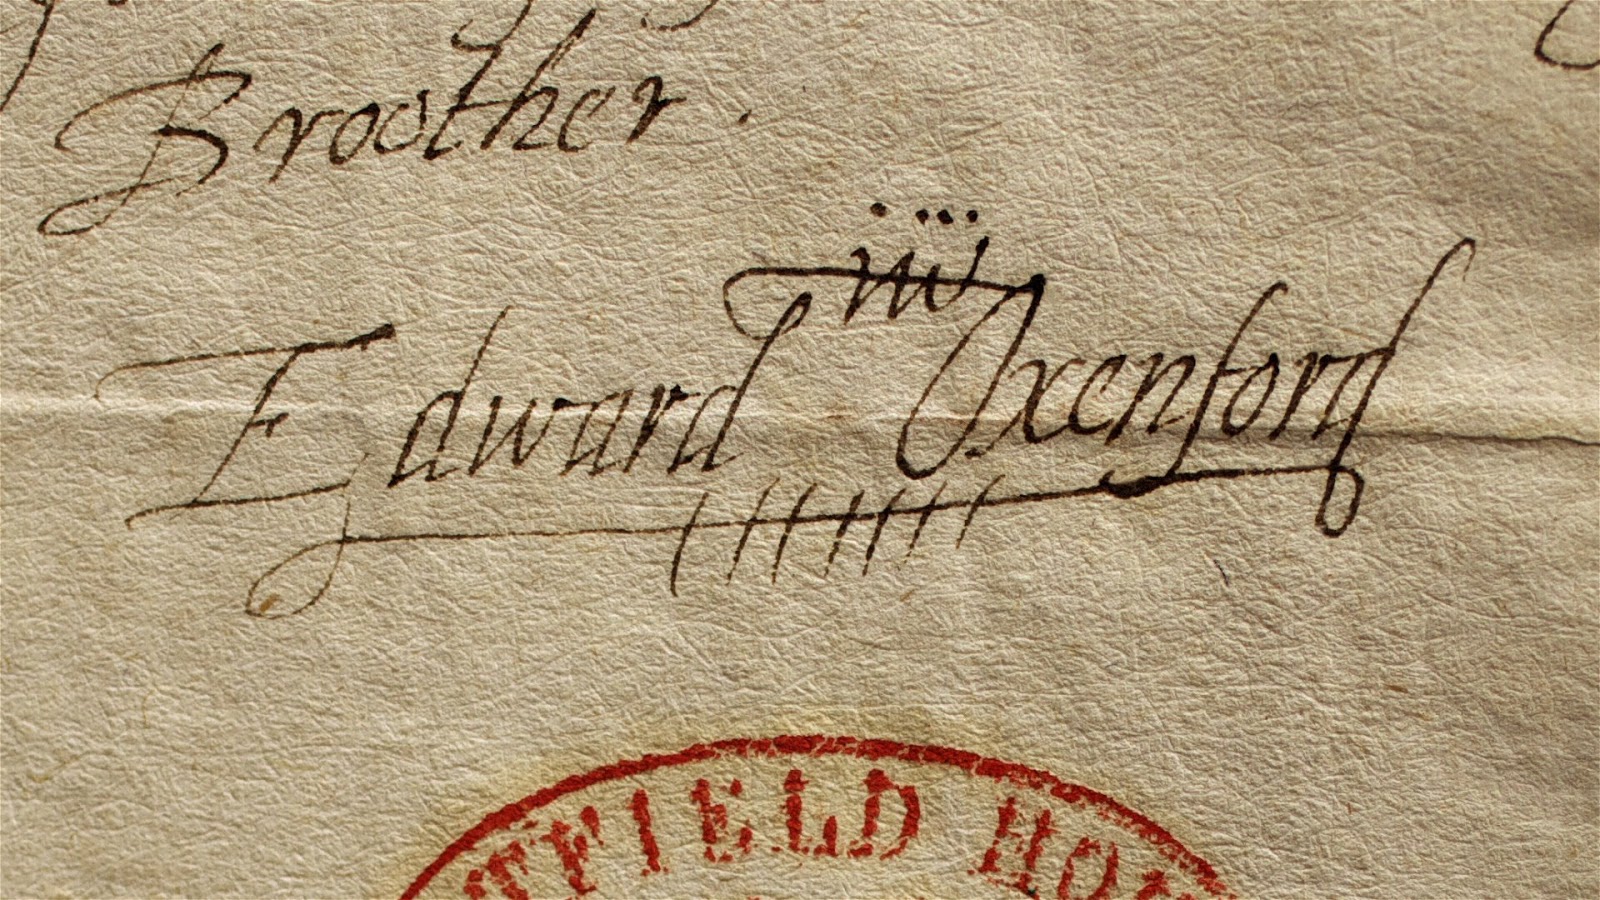 Broother.
Edward Oxenford
TFIELD HOU